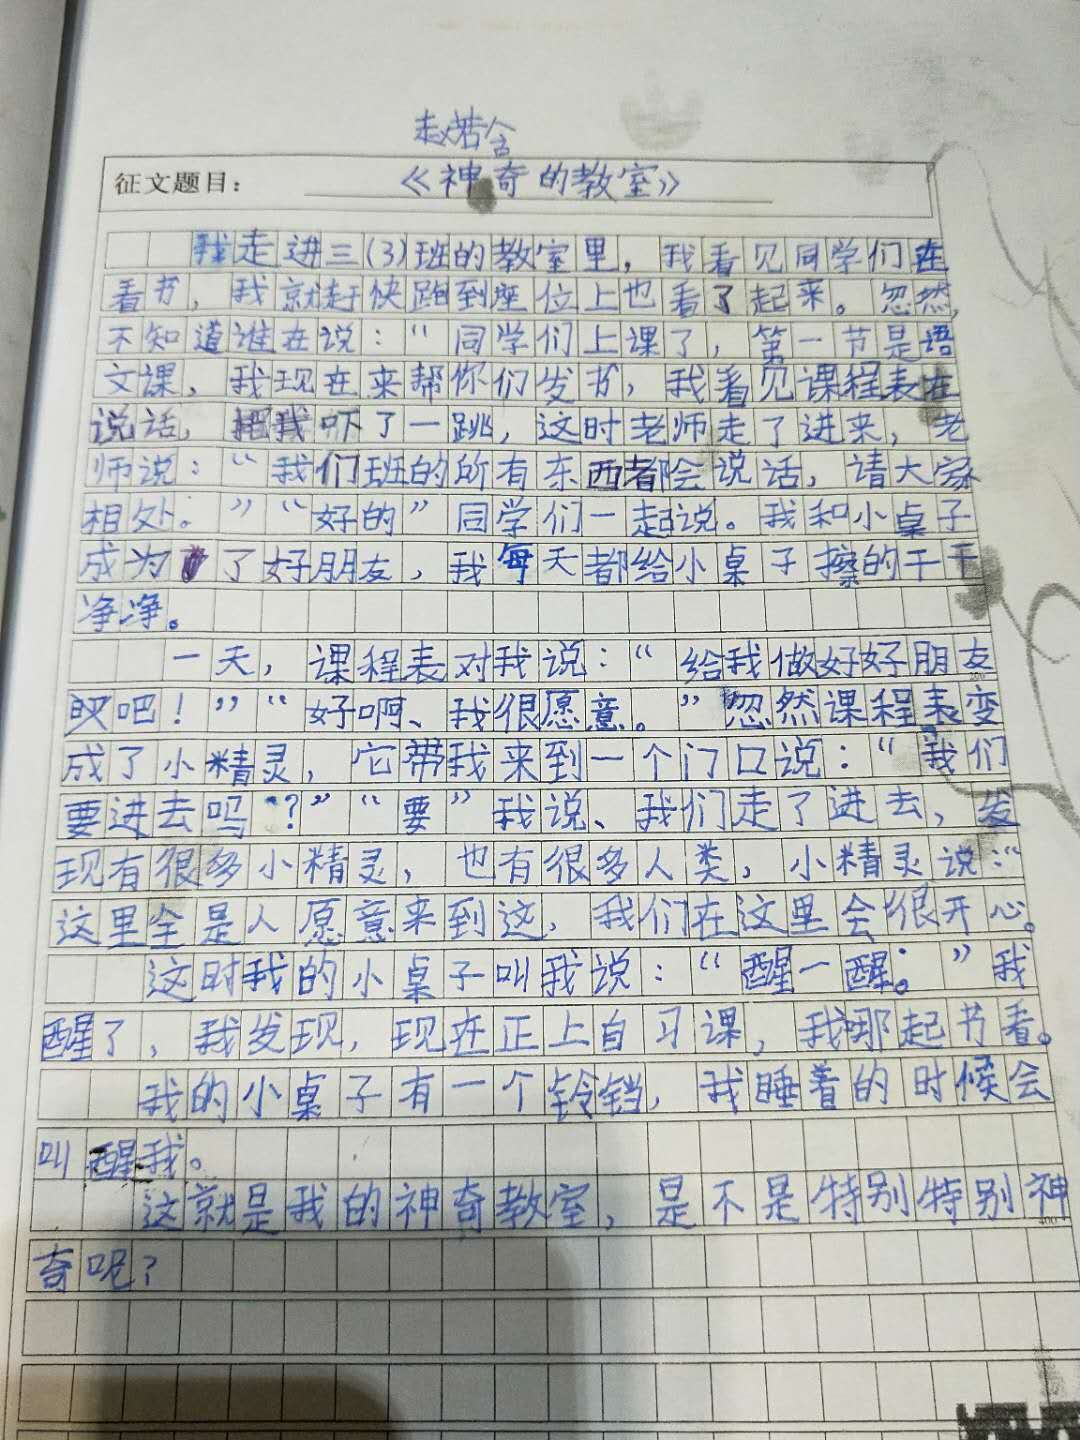 赵若含
征文题目：《神奇的教室》
我走进三(3)班的教室里，我看见同学们在
看书，我就赶快跑到座位上也看了起来。忽然，
不知道谁在说：“同学们上课了，第一节是语
文课，我现在来帮你们发书，我看见课程表在
说话，把我吓了一跳，这时老师走了进来，老
师说：“我们班的所有东西都会说话，请大家
相处。”“好的”同学们一起说。我和小桌子
成为了好朋友，我每天都给小桌子擦的干干
净净。
一天，课程表对我说：“给我做好好朋友
吧！”“好啊、我很愿意。”忽然课程表变
成了小精灵，它带我来到一个门口说：“我们
要进去吗？”“要”我说、我们走了进去，发
现有很多小精灵，也有很多人类，小精灵说：“
这里全是人愿意来到这，我们在这里会很开心。
这时我的小桌子叫我说：“醒一醒。”我
醒了，我发现，现在正上自习课，我那起书看。
我的小桌子有一个铃铛，我睡着的时候会
叫醒我。
这就是我的神奇教室，是不是特别特别神
400
奇呢？